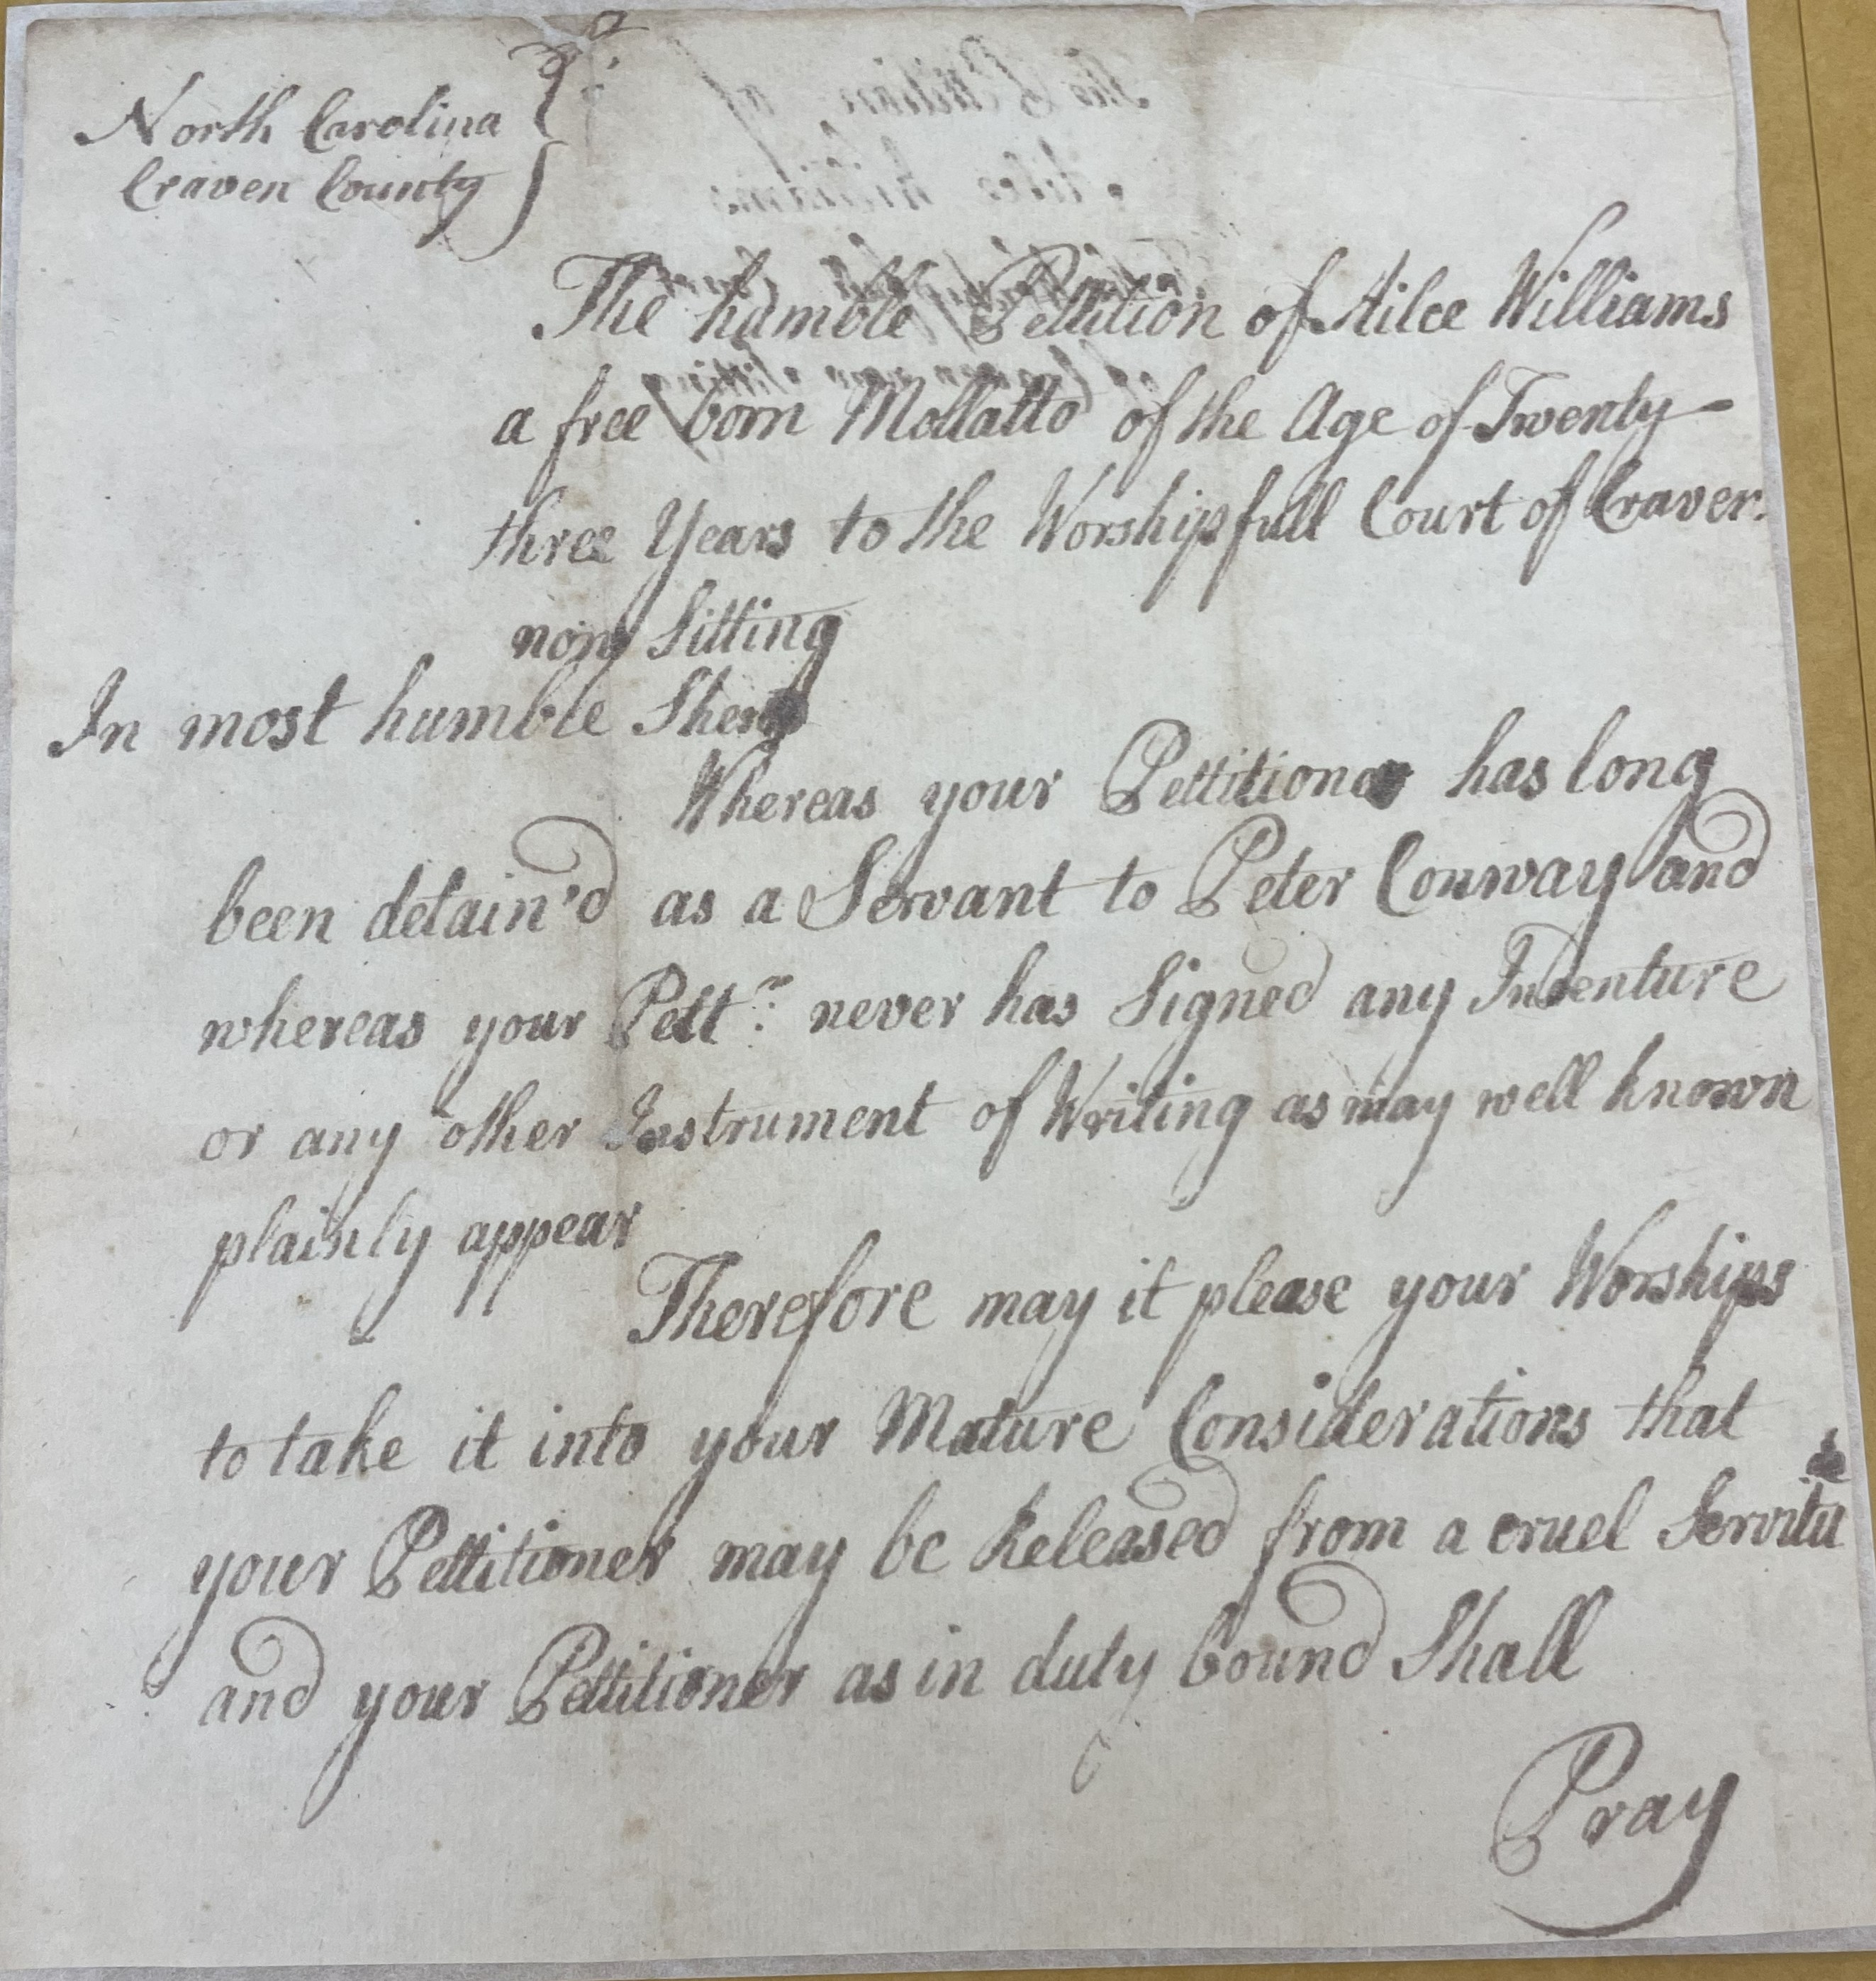 North Carolina
Craven County
The humble Pettition of Ailce Williams
a free born Mollatto of the Age of Twenty
three Years to the Worshipfull Court of Craven
now Sitting
In most humble
Whereas your Pettitioner has long
been detain'd as a Servant to Peter Conway and
whereas your Pettr. never has Signed any Indenture
or any other Instrument of Writing as may well known
plainly appear
Therefore may it please your Worships
to take it into your Mature Considerations that
your Pettitioner may be Released from a cruel Servitude
and your Pettitioner as in duty bound Shall
Pray